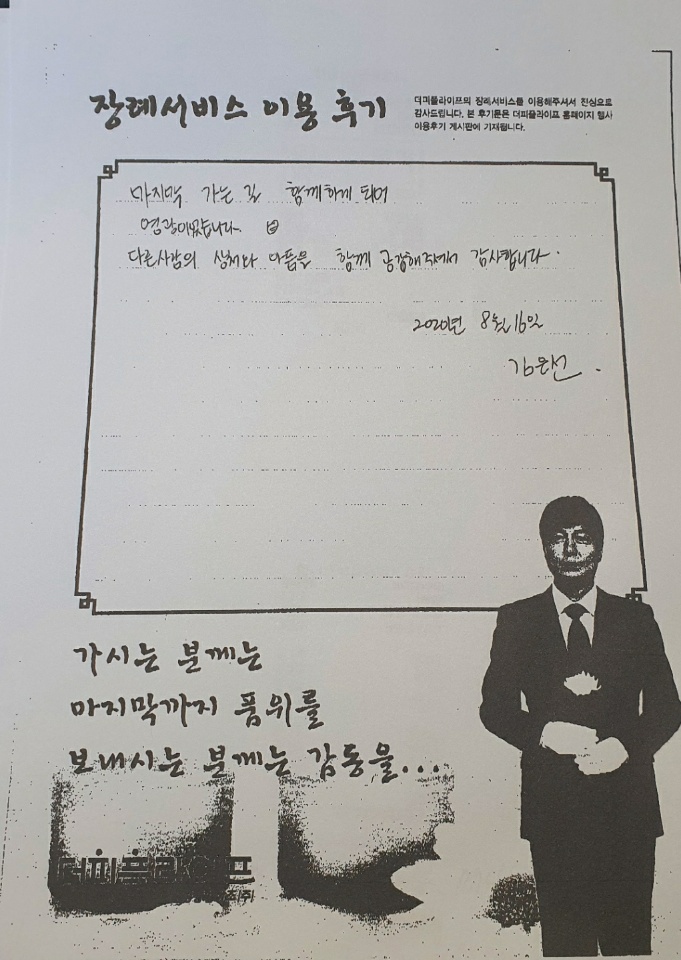 장례서비스 이용 후기
더피플라이프의 장례서비스를 이용해주셔서 진심으로
감사드립니다. 본 후기문은 더피플라이프 홈페이지 행사
이용후기 게시판에 기재됩니다.
마지막 가는 길 함께하게 되어
영광이였습니다.
다른사람의 상처와 아픔을 함께 공감해주셔서 감사합니다.
2020년 8월 16일
가시는 분께는
마지막까지 품위를
보내시는 분께는 감동을...
더피플라이프